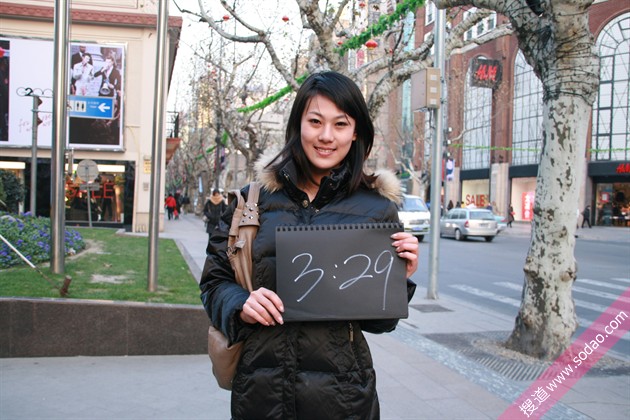 H&M
SALE
3:29
搜道 www.sodao.com